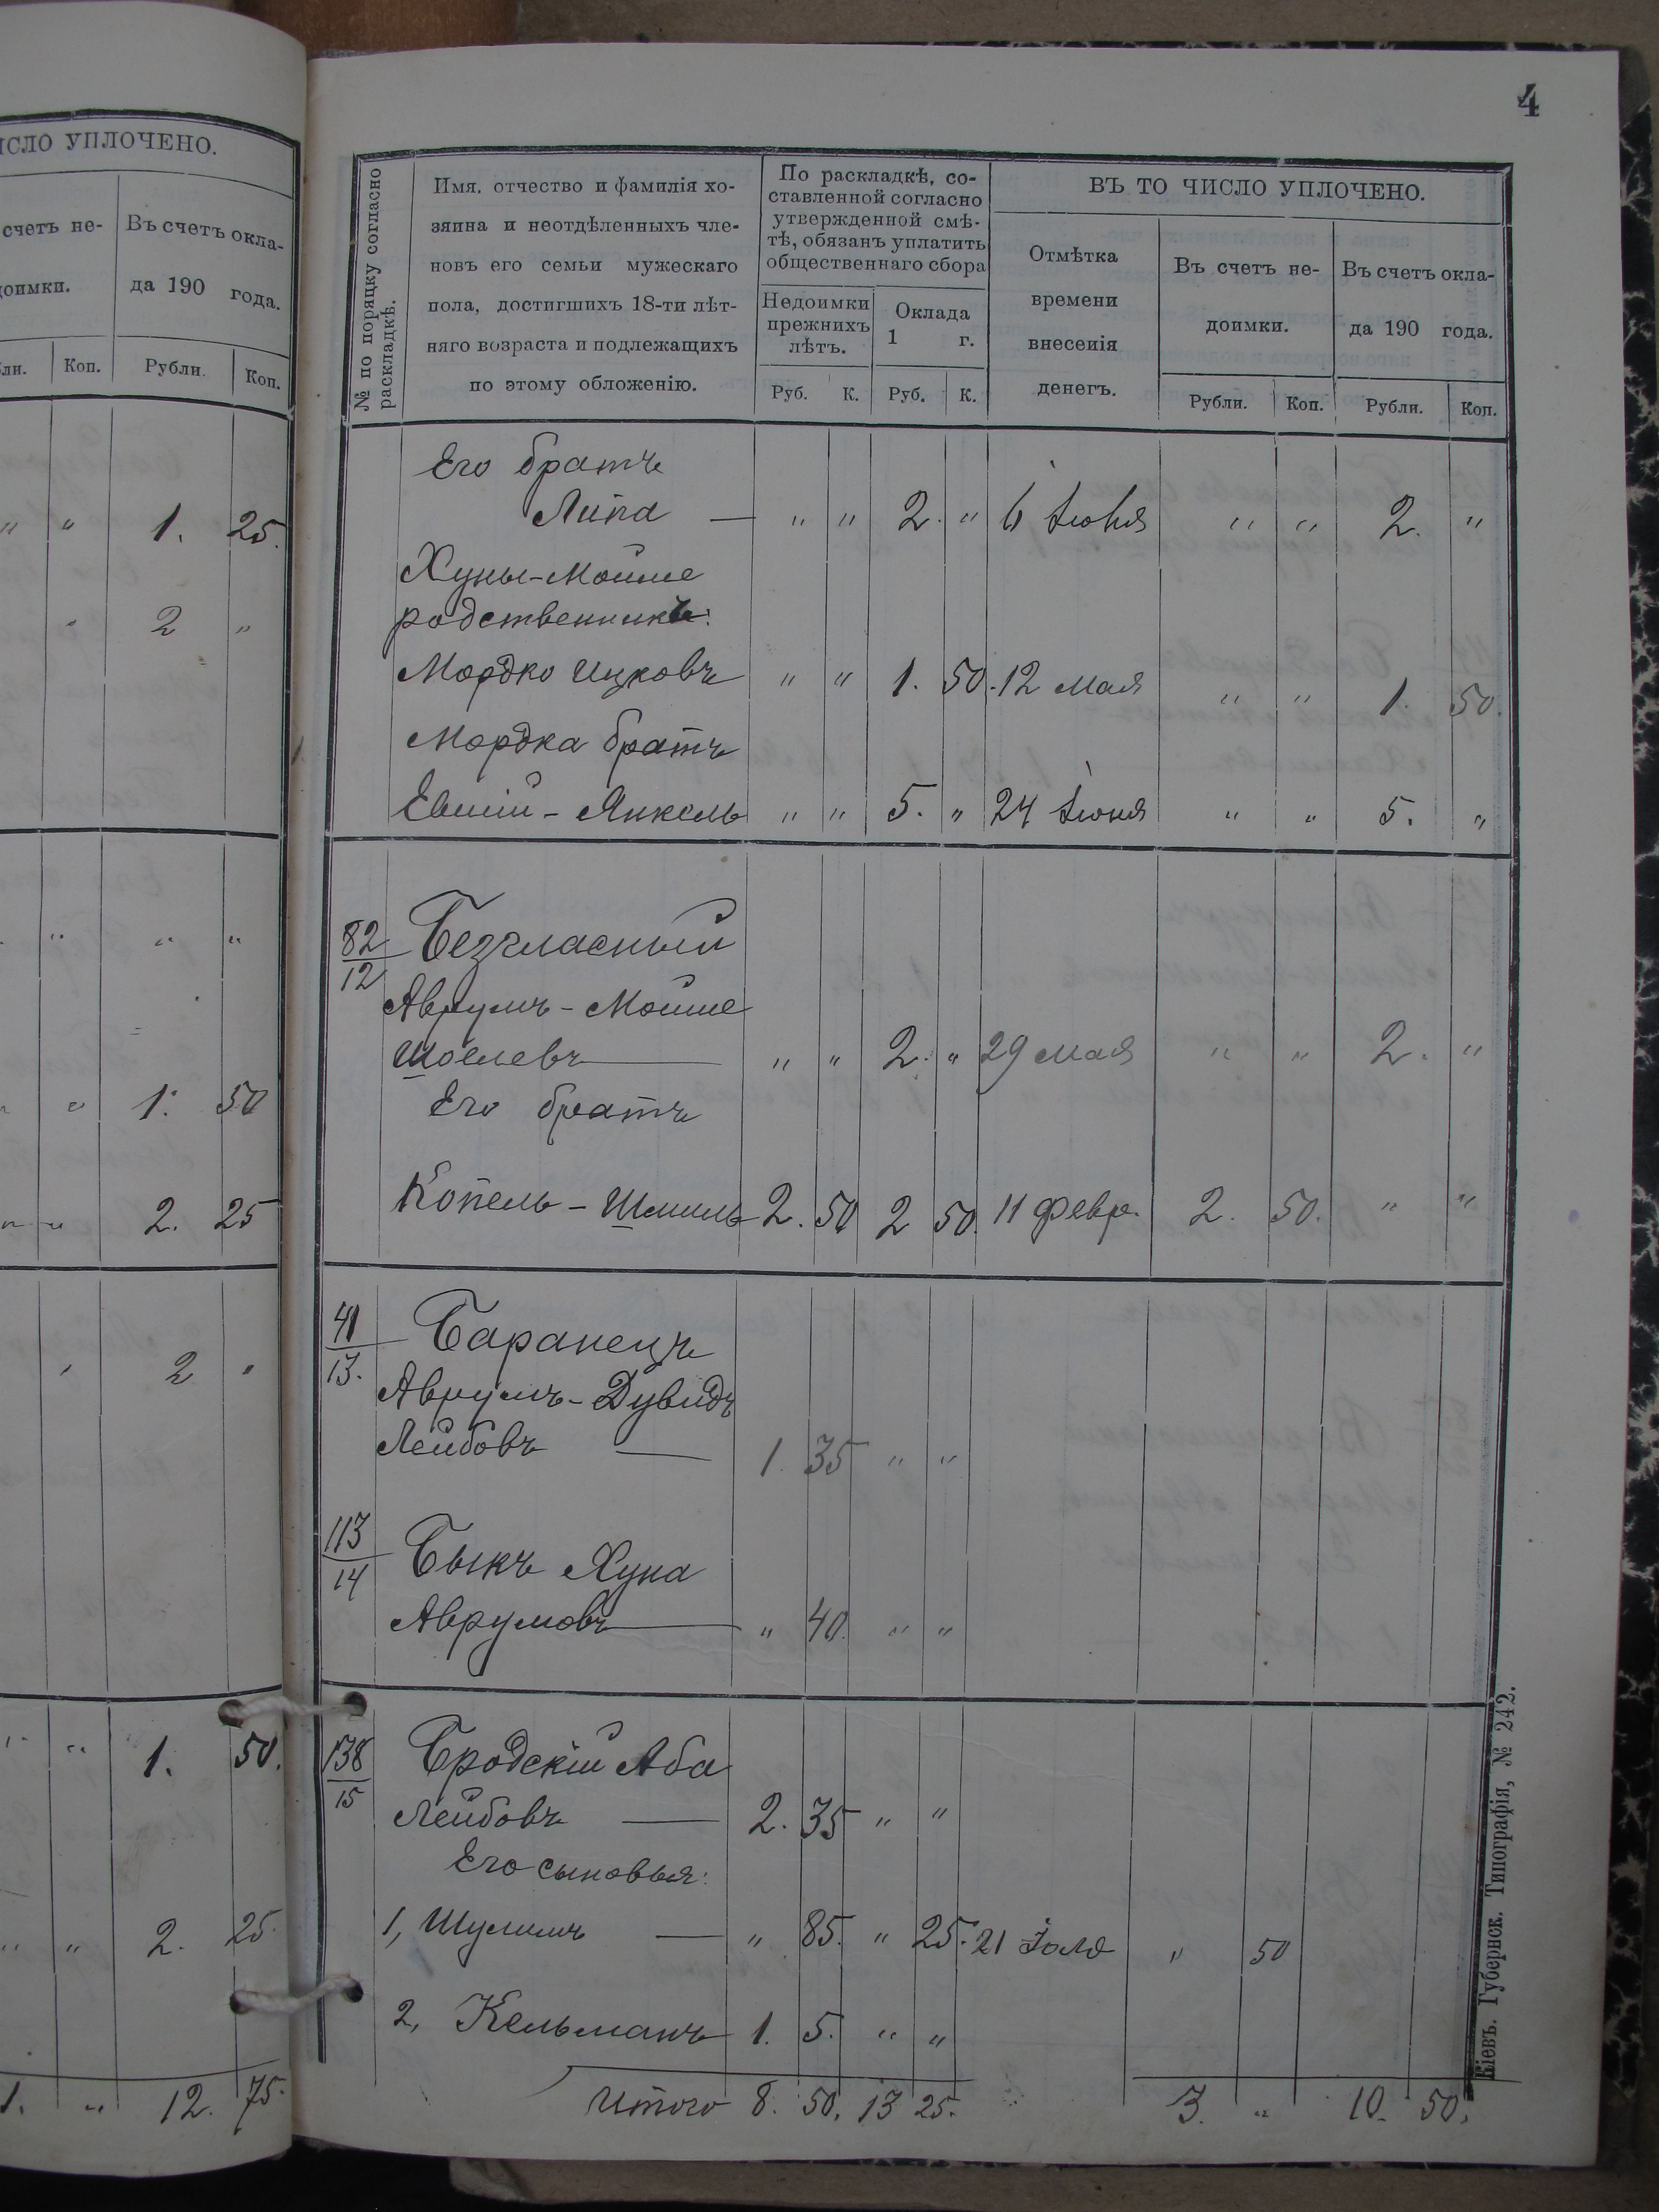 ИСЛО УПЛОЧЕНО.
счетъ не-
доимки.
Въ счетъ окла-
да 190 года.
Коп.
Рубли.
Коп.
" " 1. 25.
" 2 "
" " "
" 1. 50
" " 2. 25
2 "
" " 1. 50.
" " 2. 25.
1. " 12. 75.
4
№ по порядку согласно
раскладкѣ.
Имя, отчество и фамилія хо-
зяина и неотдѣленныхъ чле-
новъ его семьи мужескаго
пола, достигшихъ 18-ти лѣт-
няго возраста и подлежащихъ
по этому обложенію.
По раскладкѣ, со-
ставленной согласно
утвержденной смѣ-
тѣ, обязанъ уплатить
общественнаго сбора
Недоимки
прежнихъ
лѣтъ.
Оклада
1 г.
Руб. К. Руб. К.
ВЪ ТО ЧИСЛО УПЛОЧЕНО.
Отмѣтка
времени
внесенія
денегъ.
Въ счетъ не-
доимки.
Въ счетъ окла-
да 190 года.
Рубли. Коп. Рубли. Коп.
Его братъ
Липа — " " 2. " 6 Іюня " " 2. "
Хуны-Мойше
родственникъ:
Мордко Ицковъ " " 1. 50. 12 Мая " " 1. 50.
Мордка братъ
Евшій - Янкель " " 5. " 24 Іюня " " 5. "
82/12 Безгласный
Аврумъ - Мойше
Шоелевъ — " " 2. " 29 Мая " " 2. "
Его братъ
Копель - Шмиль 2. 50 2 50. 11 Февр. 2. 50. " "
41/13. Баранецъ
Аврумъ - Дувидъ
Лейбовъ — 1. 35 " "
113/14 Быкъ Хуна
Аврумовъ — " 40. " "
138/15 Бродскій Аба
Лейбовъ — 2. 35 " "
Его сыновья:
1, Шулимъ — " 85. " 25. 21 " 50
2, Кельманъ 1. 5. " "
Итого 8. 50. 13 25. 3. " 10. 50.
Кіевъ. Губернск. Типографія, № 242.